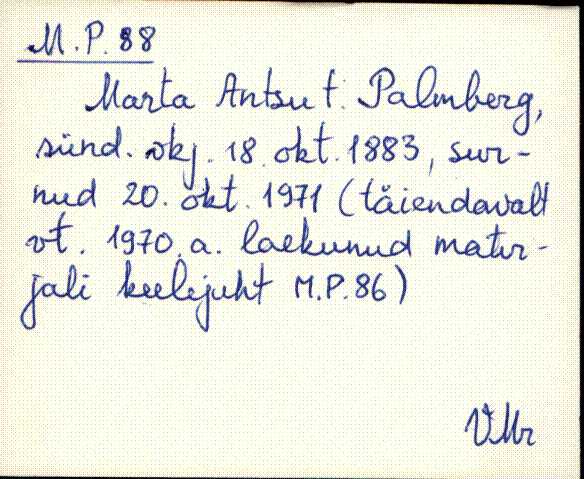 M.P. 88
Marta Antsu t. Palmberg,
sünd. vkj. 18. okt. 1883, sur-
nud 20. okt. 1971 (täiendavalt
vt. 1970. a. laekunud mater-
jali keelejuht M.P. 86)
VMr